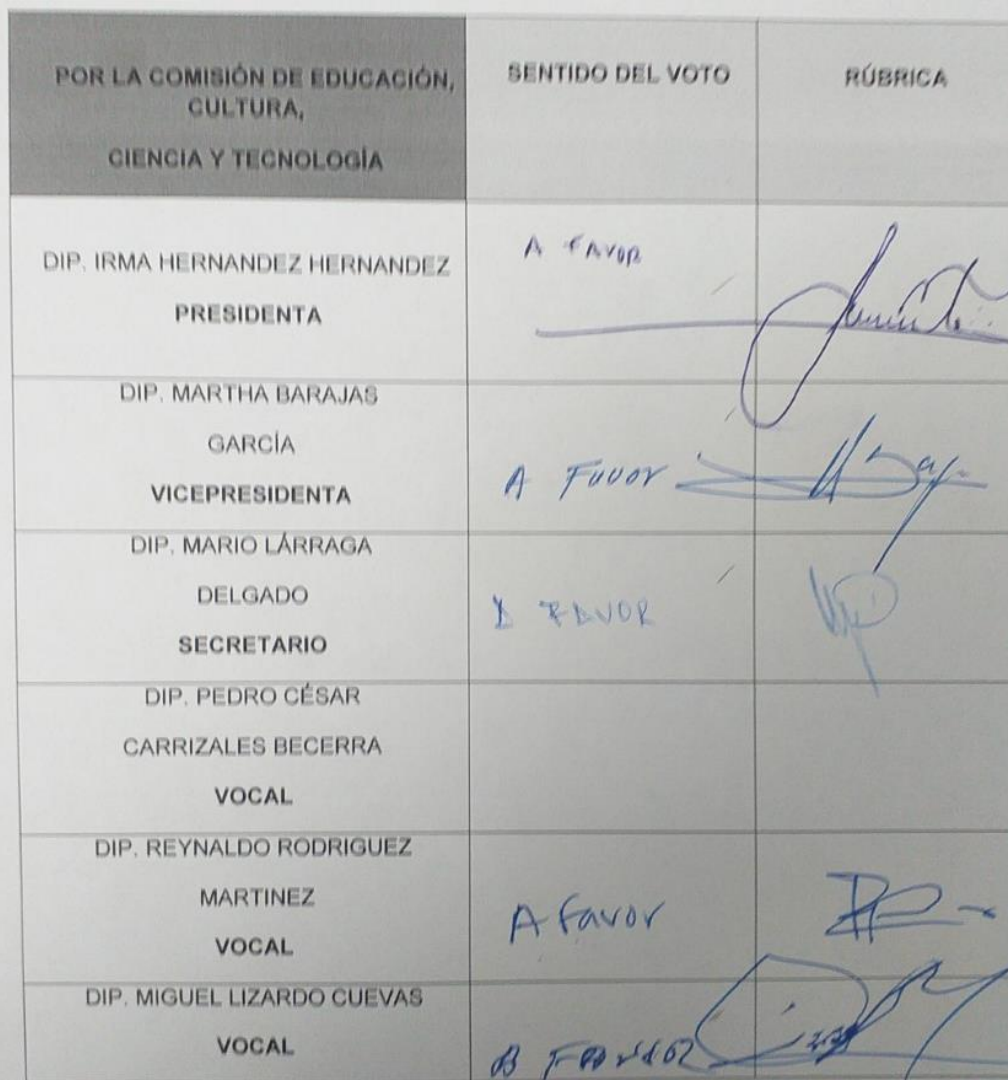 POR LA COMISIÓN DE EDUCACIÓN,
CULTURA,
CIENCIA Y TECNOLOGÍA
SENTIDO DEL VOTO
RÚBRICA
DIP. IRMA HERNANDEZ HERNANDEZ
PRESIDENTA
A FAVOR
DIP. MARTHA BARAJAS
GARCÍA
VICEPRESIDENTA
A Favor
DIP. MARIO LÁRRAGA
DELGADO
SECRETARIO
A FAVOR
DIP. PEDRO CÉSAR
CARRIZALES BECERRA
VOCAL
DIP. REYNALDO RODRIGUEZ
MARTINEZ
VOCAL
A favor
DIP. MIGUEL LIZARDO CUEVAS
VOCAL